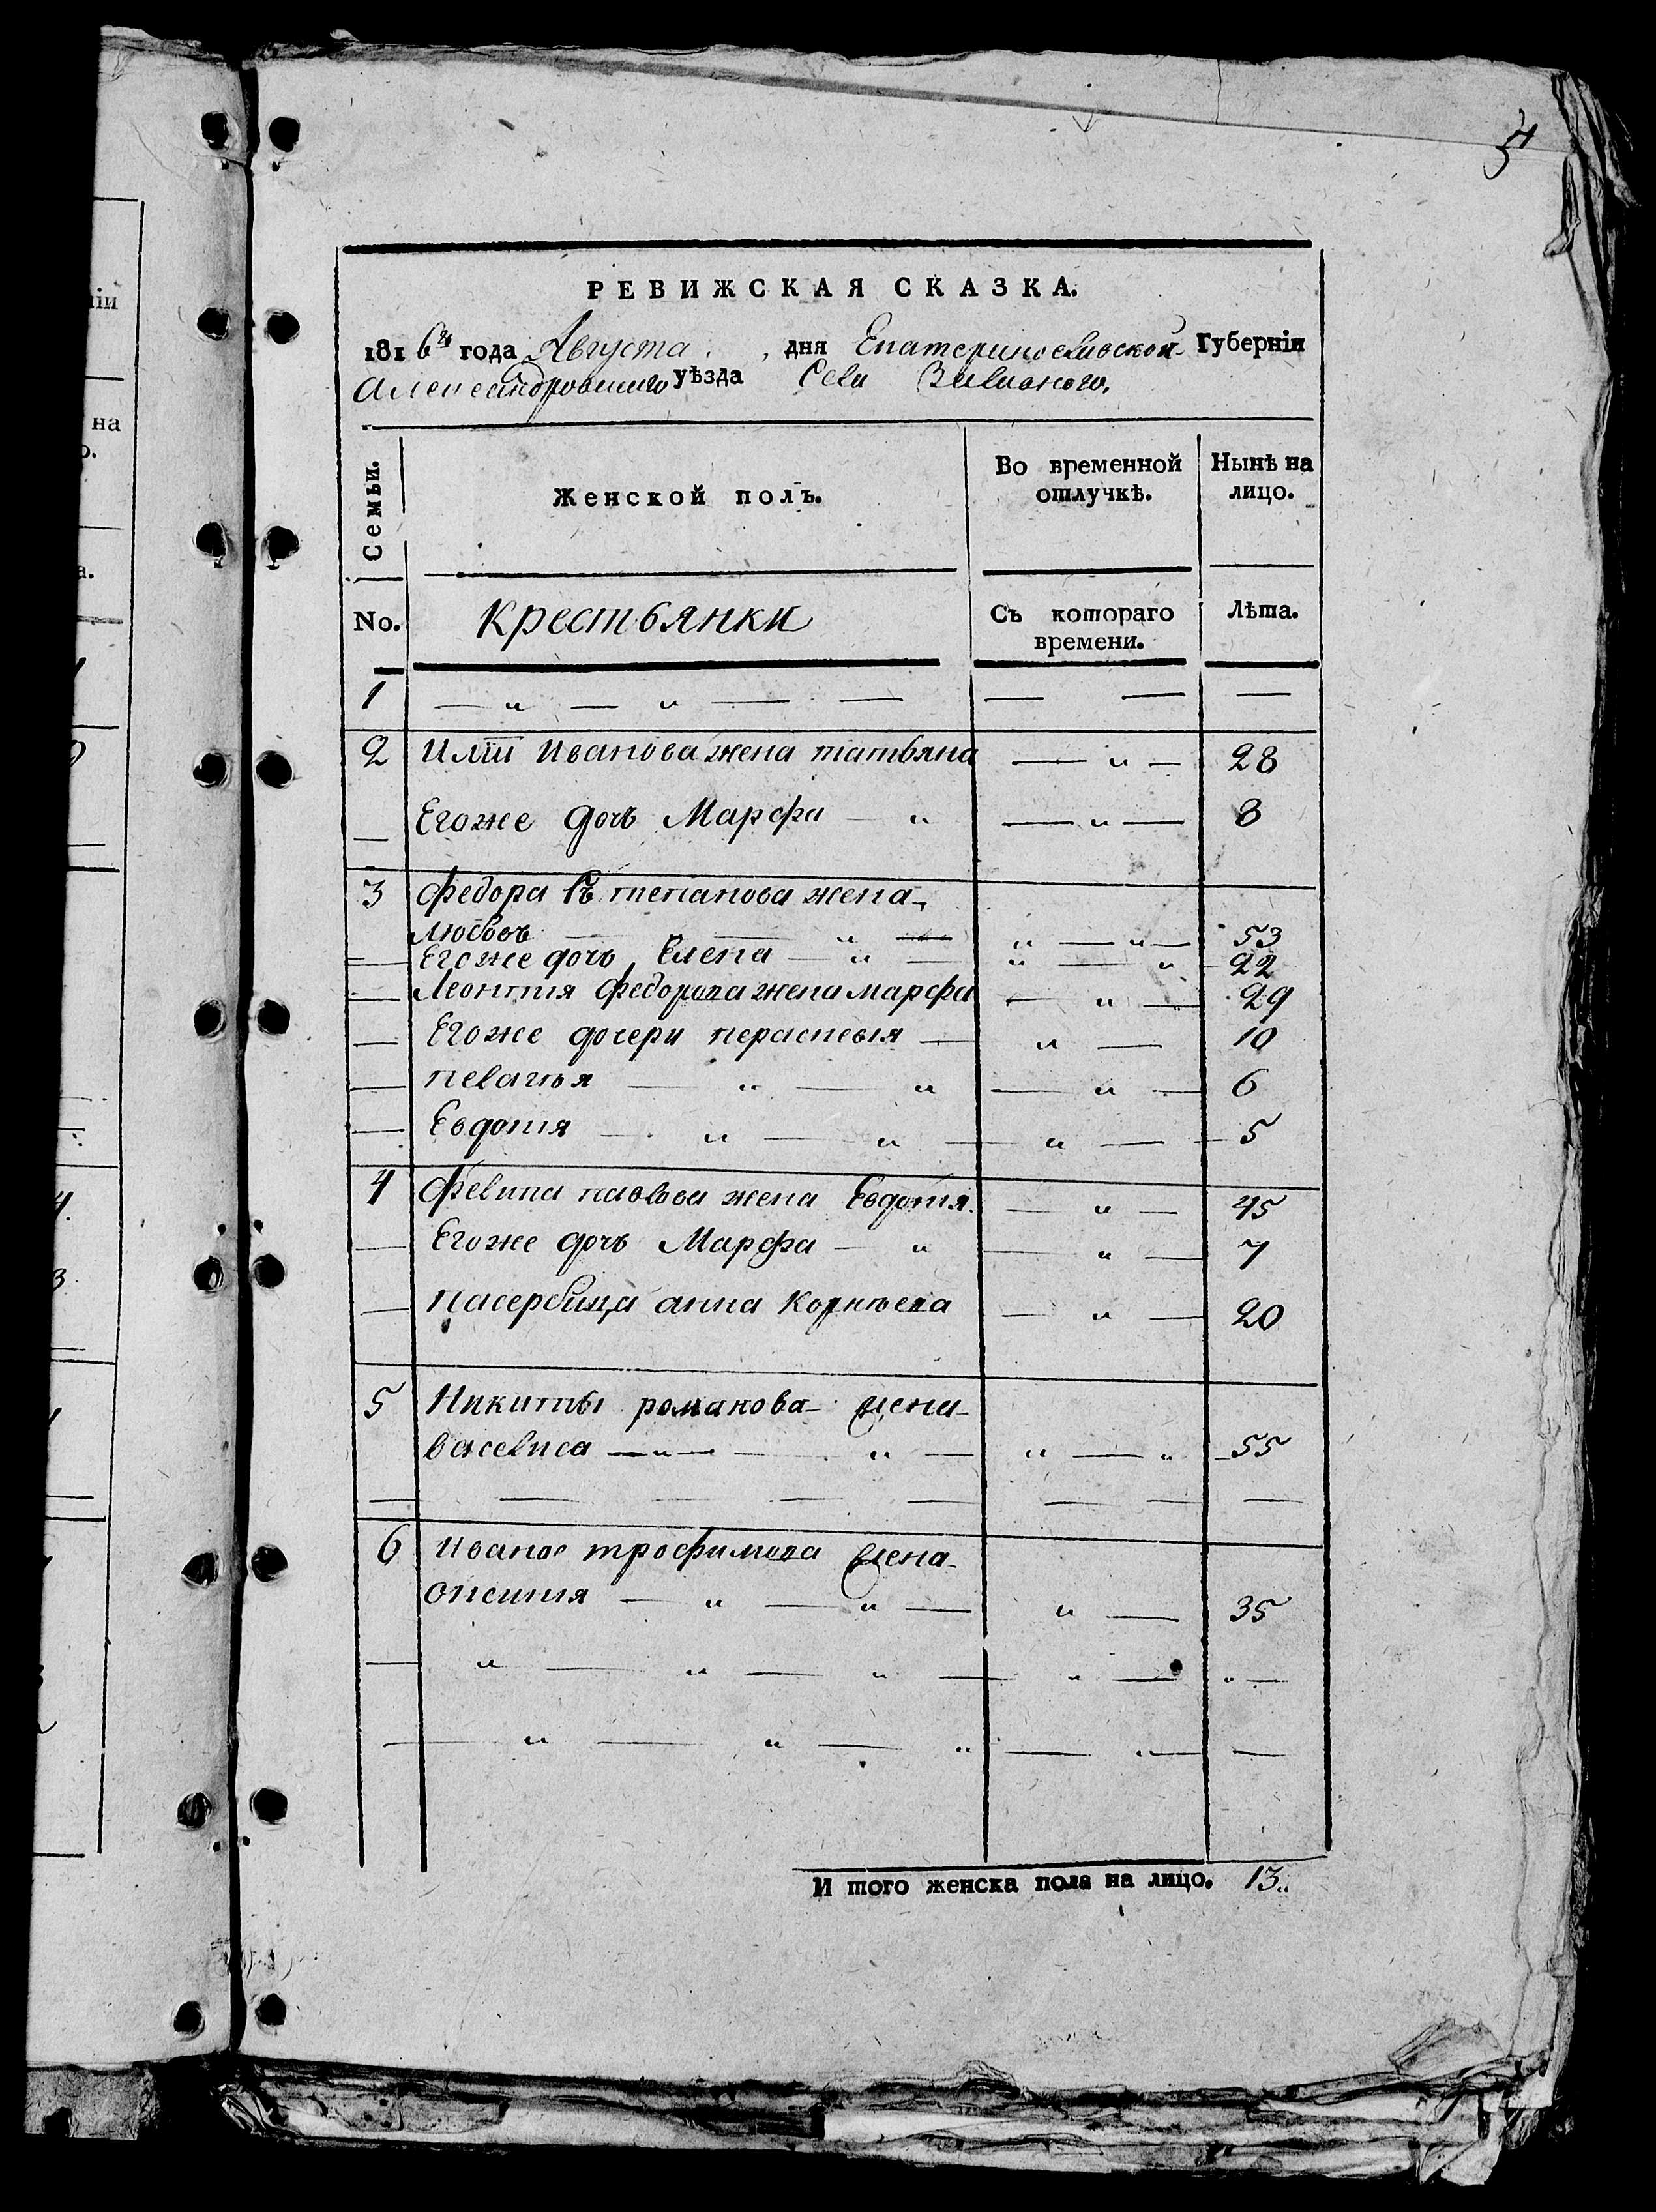 РЕВИЖСКАЯ СКАЗКА.
1816го года Августа дня Екатеринославской Губерніи
Александровского уѣзда Села
Семьи.
Женской полъ.
Во временной отлучкѣ.
Нынѣ на лицо.
No.
Крестьянки
Съ котораго времени.
Лѣта.
1
2 Илiи Иванова жена татьяна 28
Егоже дочь Марфа 8
3 Федора Степанова жена
любовь 53
Егоже дочь Елена 22
Леонтия Федорова жена марфа 29
Егоже дочери параскевия 10
пелагия 6
Евдокия 5
4 Филипа павлова жена Евдокия 45
Егоже дочь Марфа 7
пасербица анна Корнѣева 20
5 Никиты романова жена
василиса 55
6 Ивана трофимова жена
Оксиния 35
И того женска пола на лицо. 13
ніи
на